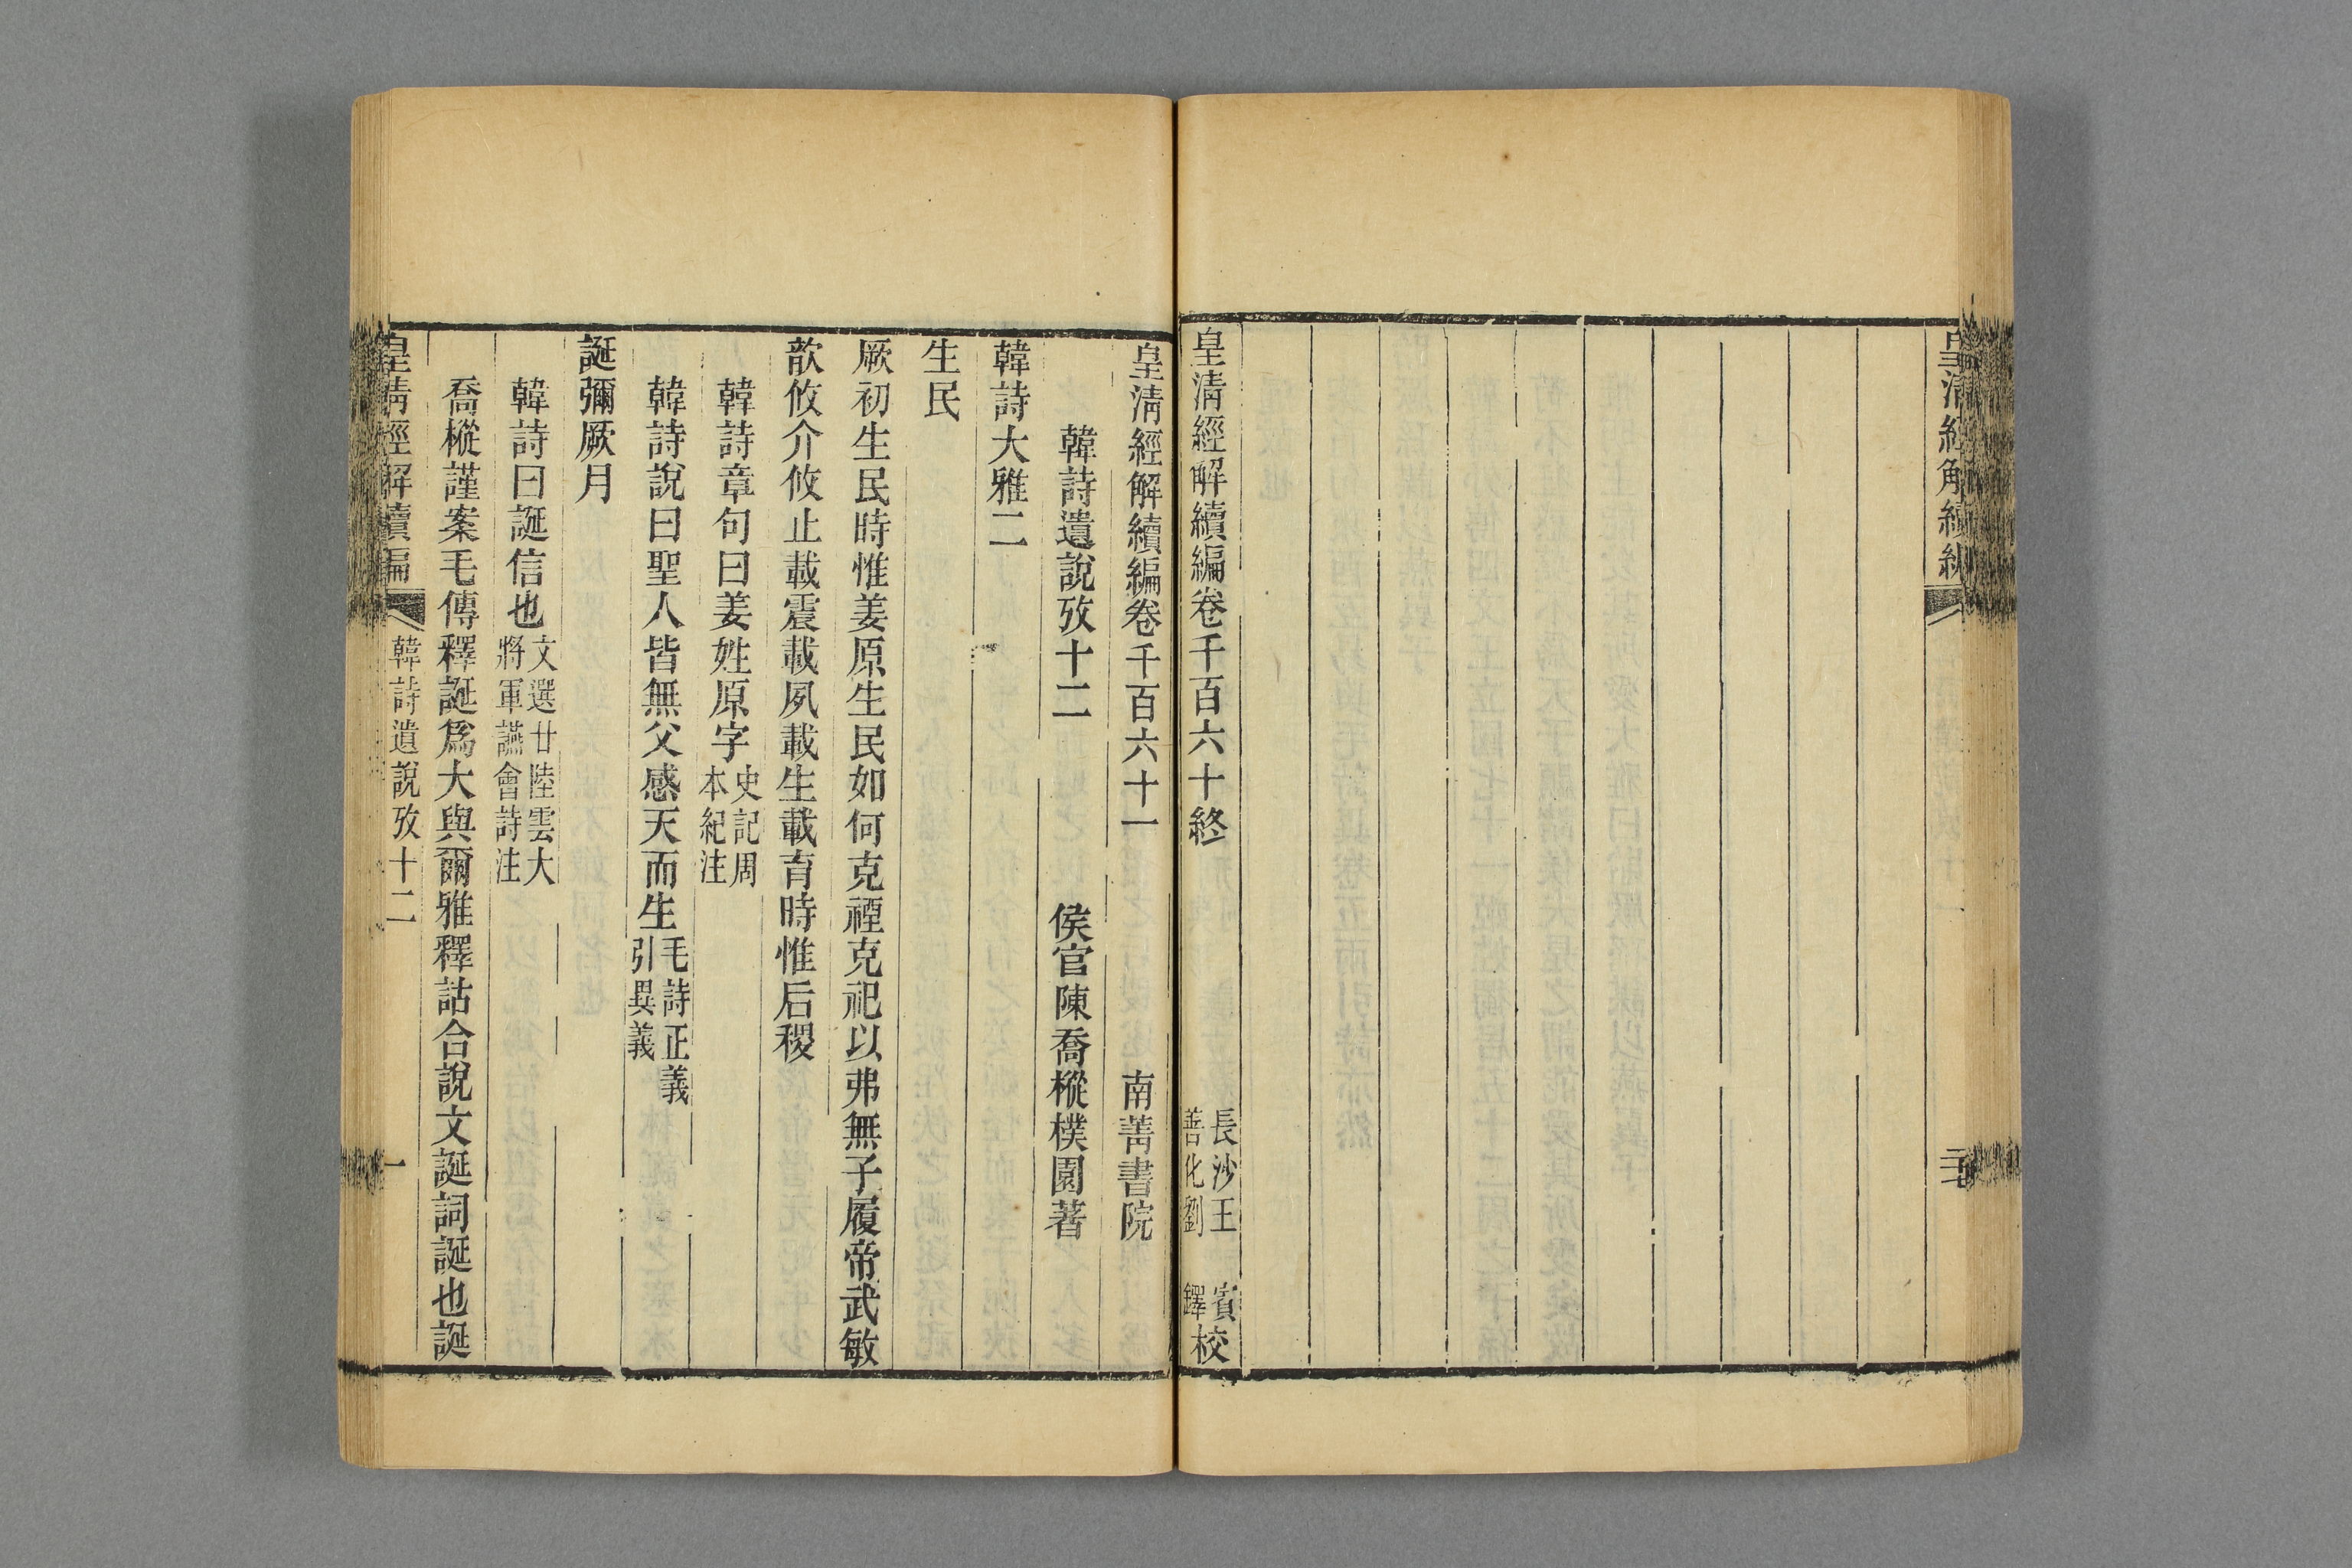 皇清經解續編
皇清經解續編卷千百六十終
長沙王　賓
善化劉　鐸
校
皇清經解續編卷千百六十一　南菁書院
韓詩遺說攷十二　侯官陳喬樅樸園著
韓詩大雅二
生民
厥初生民時惟姜原生民如何克禋克祀以弗無子履帝武敏
歆攸介攸止載震載夙載生載育時惟后稷
韓詩章句曰姜姓原字
史記周
本紀注
韓詩說曰聖人皆無父感天而生
毛詩正義
引異義
誕彌厥月
韓詩曰誕信也
文選廿陸雲大
將軍讌會詩注
喬樅謹案毛傳釋誕爲大與爾雅釋詁合說文誕詞誕也誕
皇清經解續編　韓詩遺說攷十二　一